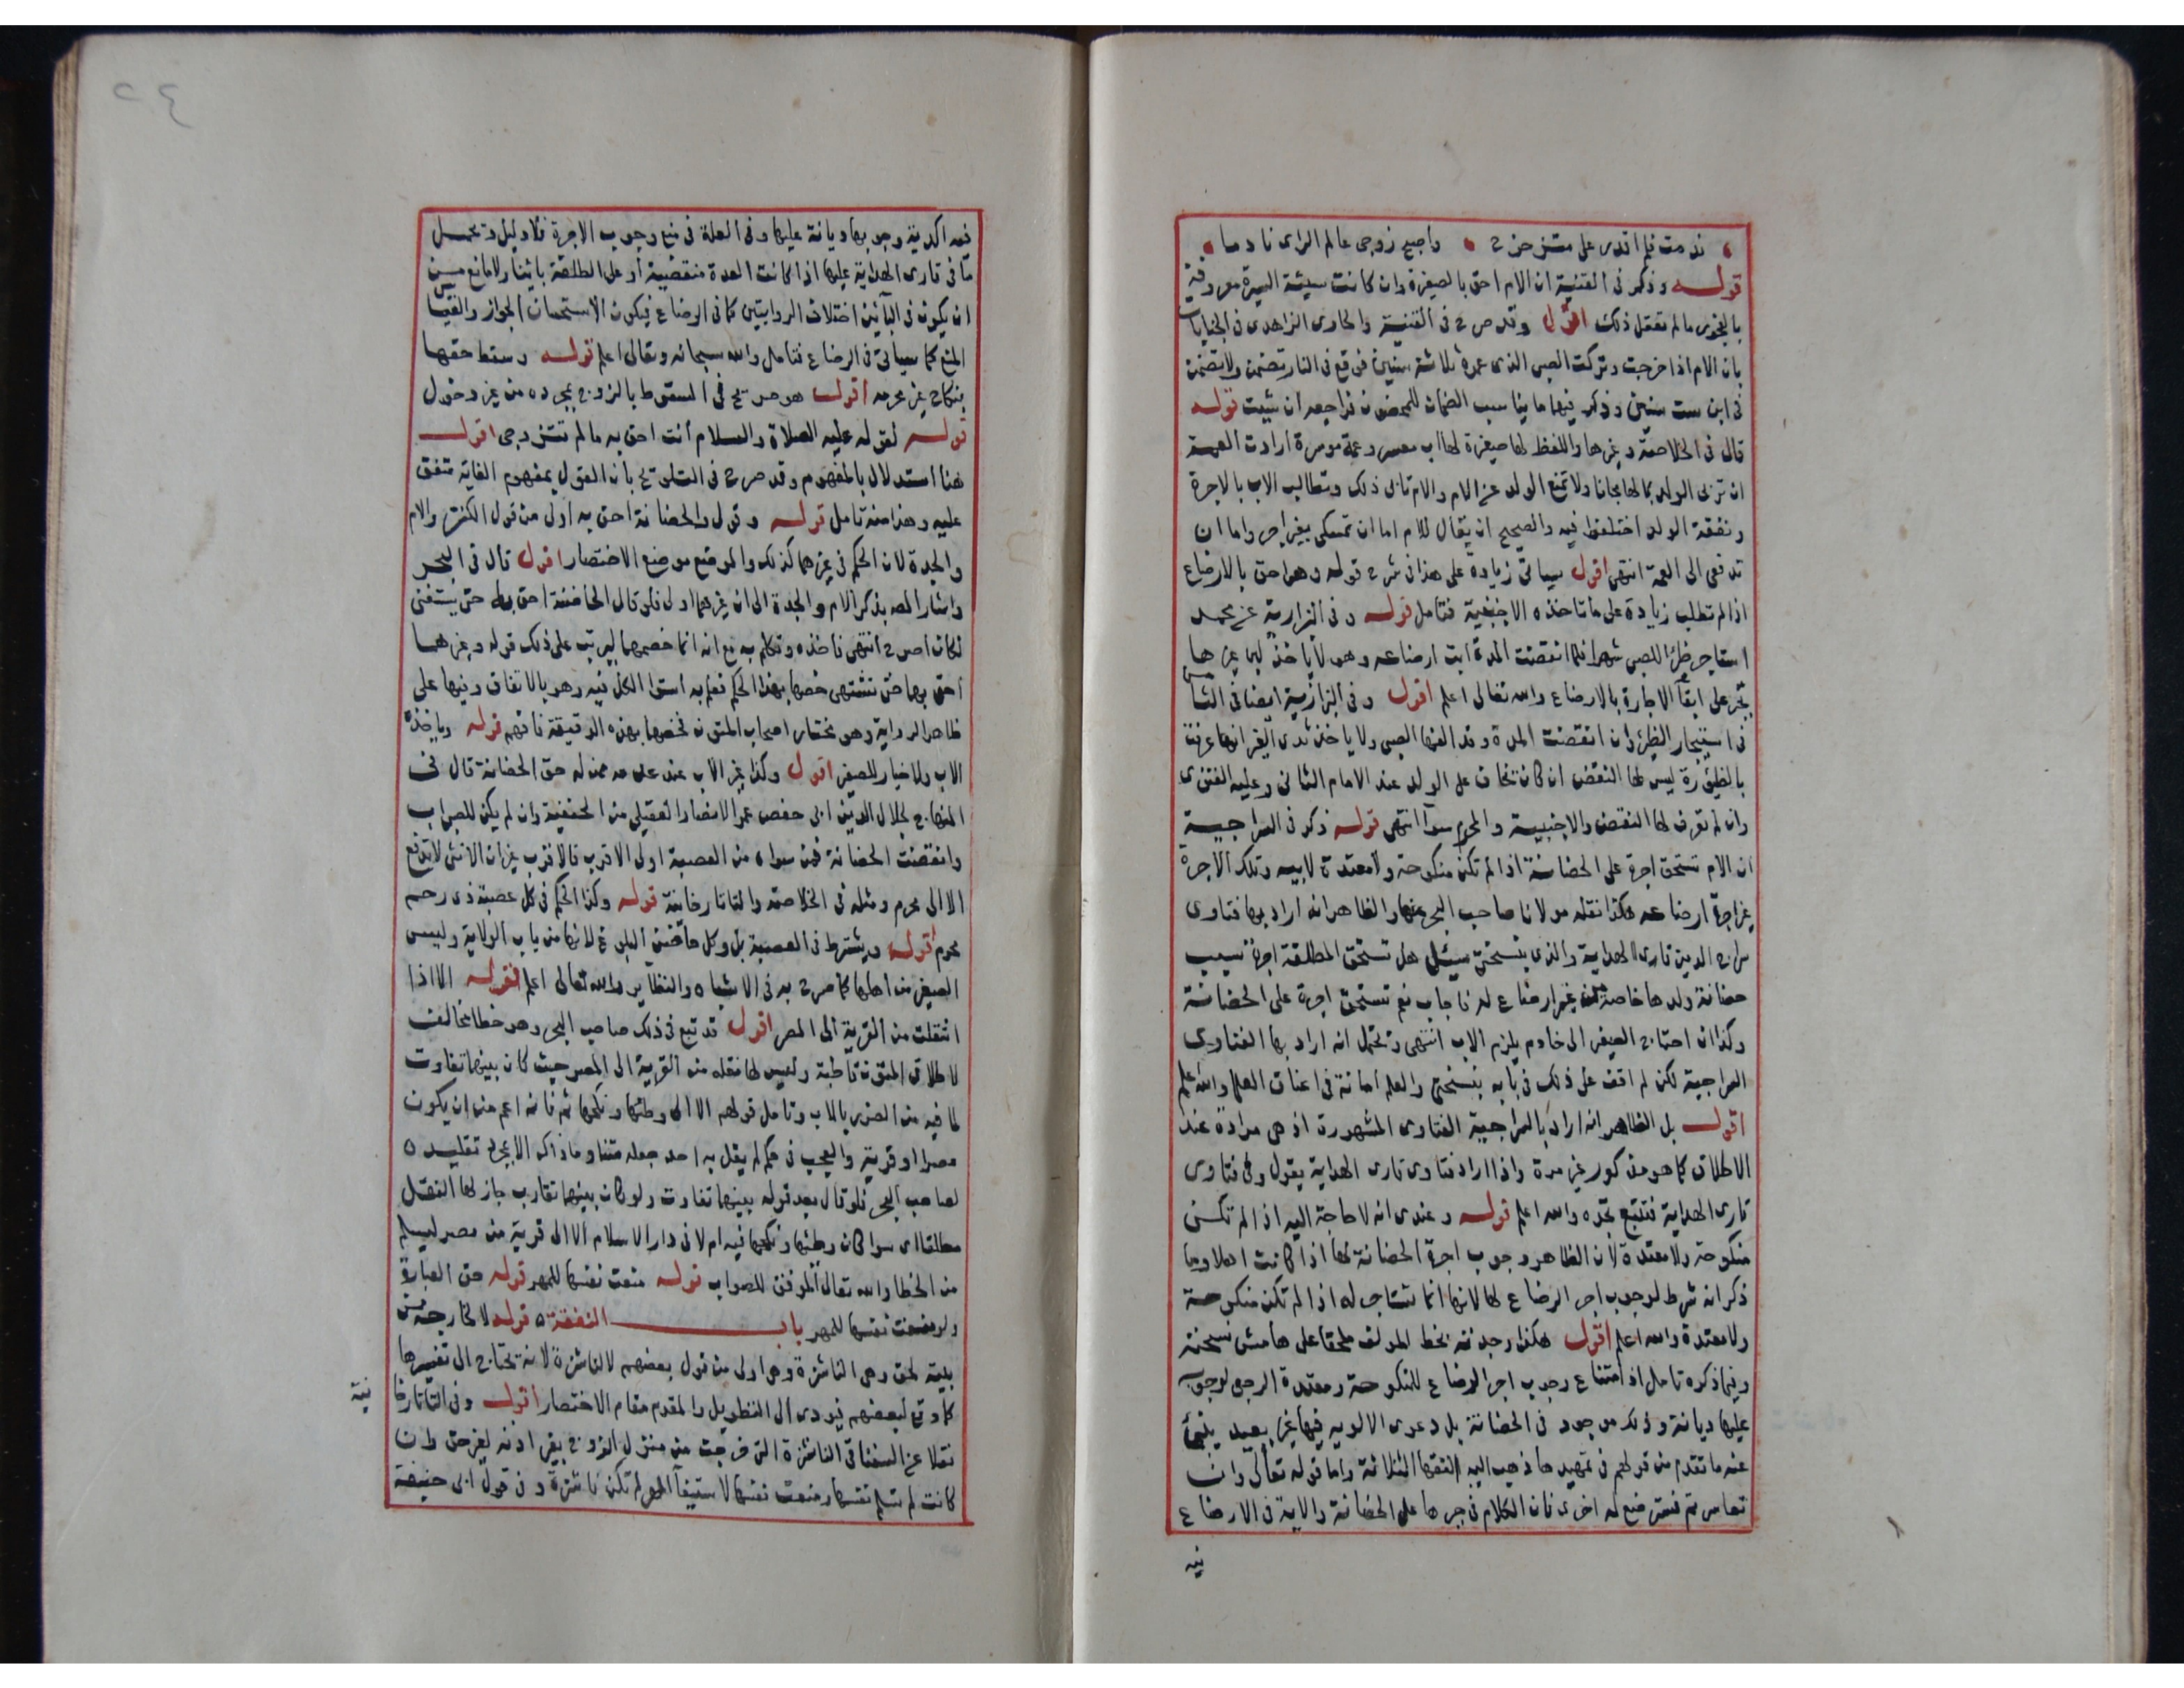 ندمت فلم اقدر على متزحزح • واصبح زوجي عالم الراى نادما •
قوله وذكر فى القنية ان الام احق بالصغيرة وان كانت سيئة السيرة معروفة
بالفجور ما لم تعقل ذلك اقول وقد صرح فى القنية والحاوى الزاهدى فى الجنايات
بان الام اذا خرجت وتركت الصبى الذى عمره ثلاثة سنين فوقع فى النار تضمن ولا تضمن
فى ابن ست سنين وذكر فيها ما يناسب الضمان للمحضون فراجعه ان شيت قوله
قال فى الخلاصة وغيرها واللفظ لها صغيرة لها اب معسر وعمة موسرة ارادت العمة
ان تربى الولد بمالها مجانا ولا تمنع الولد عن الام والام تابى ذلك وتطالب الاب بالاجرة
ونفقة الولد اختلفوا فيه والصحيح ان يقال للام اما ان تمسكى بغير اجر واما ان
تدفعى الى العمة انتهى اقول سياتى زيادة على هذا فى شرح قوله وهى احق بالارضاع
اذا لم تطلب زيادة على ما تاخذه الاجنبية فتامل قوله وفى البزازية عن محمد
استاجر ظئرا للصبى شهرا فلما انقضت المدة ابت ارضاعه وهو لا ياخذ لبن غيرها
تجبر على ابقآ الاجارة بالارضاع والله تعالى اعلم اقول وفى البزازية ايضا فى الثانى
فى استيجار الظئر وان انقضت المدة وقد الفها الصبى ولا ياخذ ثدى الغير انها عرفت
بالظيؤرة ليس لها النقض ان كان يخاف على الولد عند الامام الثانى وعليه الفتوى
وان لم تعرف لها النقض والاجنبية والمحرم سوآ انتهى قوله ذكر فى السراجية
ان الام تستحق اجرة على الحضانة اذا لم تكن منكوحة ولا معتدة لابيه وتلك الاجرة
غير اجرة ارضاعه هكذا نقله مولانا صاحب البحر عنها والظاهر انه اراد بها فتاوى
سراج الدين قارى الهداية والذى بنسختى سيئل هل تستحق المطلقة اجرة بسبب
حضانة ولدها خاصة من غير ارضاع له فاجاب نعم تستحق اجرة على الحضانة
وكذا ان احتاج الصغير الى خادم يلزم الاب انتهى ويحتمل انه اراد بها الفتاوى
السراجية لكن لم اقف على ذلك فى بابه بنسختى والعلم امانة فى اعناق العلما والله اعلم
اقول بل الظاهر انه اراد بالسراجية الفتاوى المشهورة اذ هى مرادة عند
الاطلاق كما هو مذكور غير مرة واذا اراد فتاوى قارى الهداية يقول وفى فتاوى
قارى الهداية فتتبع تجده والله اعلم قوله وعندى انه لا حاجة اليه اذا لم تكن
منكوحة ولا معتدة لان الظاهر وجوب اجرة الحضانة لها اذا كانت اهلا وما
ذكر انه شرط لوجوب اجر الرضاع لها لانها انما تستاجر له اذا لم تكن منكوحة
ولا معتدة والله اعلم اقول هكذا وجدته بخط المولف ملحقا على هامش نسخته
وفيما ذكره تامل اذ امتناع وجوب اجر الرضاع للمنكوحة ومعتدة الرجعى لوجوبه
عليها ديانة وذلك موجود فى الحضانة بل دعوى الالويه فيها غير بعيد ينبئ
عنه ما تقدم من قولهم فى تمهيد ما ذهب اليه الفقهآ الثلاثة واما قوله تعالى وان
تعاسرتم فسترضع له اخرى فان الكلام فى جبرها على الحضانة والاية فى الارضاع
فيه
فيه اكدية وجوبها ديانة عليها وفى العلة فى منع وجوب الاجرة فلا دليل ويحمل
ما فى قارى الهداية عليها اذا كانت العدة منقضية او على المطلقة بائنا ولا مانع من
ان يكون فى البائن اختلاف الروايتين كما فى الرضاع فيكون الاستحسان الجواز والقياس
المنع كما سياتى فى الرضاع فتامل والله سبحانه وتعالى اعلم قوله وسقط حقها
بنكاح غير محرمه اقول هو صريح فى السقوط بالتزوج بمجرده من غير دخول
قوله لقوله عليه الصلاة والسلام أنت احق به ما لم تتزوجى اقول
هذا استدلال بالمفهوم وقد صرح فى التلويح بان القول بمفهوم الغاية متفق
عليه وهذا منه تامل قوله وقول والحضانة احق به أولى من قول الكنز والام
والجدة لان الحكم فى غيرهما كذلك والموضع موضع الاختصار اقول قال فى البحر
واشار المصـ بذكر الام والجدة الى ان غيرهما اولى فلو قال الحاضنة احق بها حتى يستغنى
لكان اصرح انتهى فاخذه وتكلم به مع انه انما خصمهما ليرتب على ذلك قوله وغيرهما
احق بها حتى تشتهى خصها بهذا الحكم فعلم به استوا الكل فيه وهو بالاتفاق وفيها على
ظاهر الرواية وهو مختار اصحاب المتون فخصها بهذه الدقيقة فافهم قوله وياخذه
الاب ولا خيار للصغير اقول وكذا غير الاب عند عدمه ممن له حق الحضانة قال فى
المنهاج لجلال الدين ابى حفص عمر الانصارا العقيلى من الحنفية وان لم يكن للصبى اب
وانقضت الحضانة فمن سواه من العصبة اولى الاقرب فالاقرب غير ان الانثى لا تدفع
الا الى محرم ومثله فى الخلاصة والتاتارخانية قوله وكذا الحكم فى كل عصبة ذى رحم
محرم اقول ويشترط فى العصبة بل وكل حاضن البلوغ لانها من باب الولاية وليس
الصغير من اهلها كما صرح به فى الاشباه والنظاير والله تعالى اعلم قوله الا اذا
انتقلت من القرية الى المصر اقول قد تبع فى ذلك صاحب البحر وهو خطا مخالف
لاطلاق المتون قاطبة وليس لها نقله من القرية الى المصر حيث كان بينهما تفاوت
لما فيه من الضرر بالاب وتامل قولهم الا الى وطنها ونكحها ثم فانه اعم من ان يكون
مصرا او قرية والعجب فى حكم لم يقل به احد جعله متنا وما ذاك الا بمجرد تقليده
لصاحب البحر فلو قال بعد قوله بينهما تفاوت ولو كان بينهما تقارب جاز لها النقل
مطلقا اى سوا كان وطنها ونكحها فيه ام لا فى دار الاسلام الا الى قرية من مصر ليسلم
من الخطا والله تعالى الموفق للصواب قوله منعت نفسها للمهر قوله حق العبارة
ولو منعت نفسها للمهر باب النفقة ٥ قوله لا خارجة من
بيته بحق وهى الناشزة وهى اولى من قول بعضهم لا لناشزة لانه يحتاج الى تفسيرها
كما وقع لبعضهم فيودى الى التطويل والمقدم مقام الاختصار اقول وفى التاتارخانية
نقلا عن السغناقى الناشزة التى خرجت من منزل الزوج بغير اذنه بغير حق وان
كانت لم تسلم نفسها ومنعت نفسها لاستيفآ المهر لم تكن ناشزة وفى قول ابى حنيفة